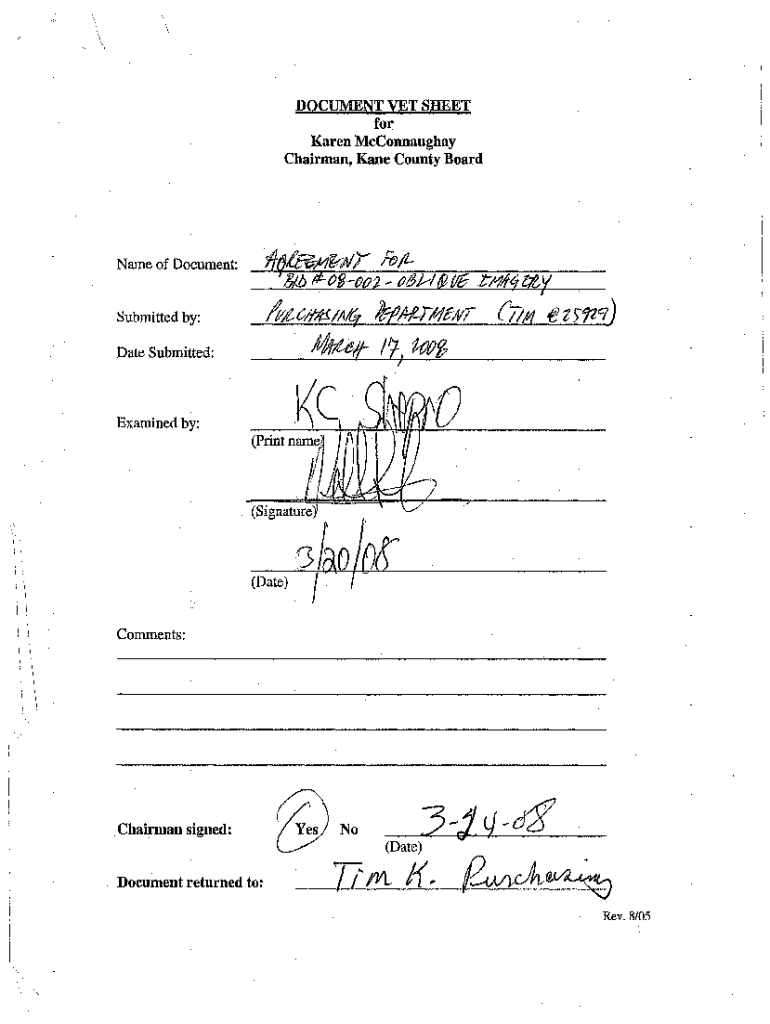 DOCUMENT VET SHEET
for
Karen McConnaughay
Chairman, Kane County Board
Name of Document: AGREEMENT FOR
BID #08-002 - OBLIQUE IMAGERY
Submitted by: PURCHASING DEPARTMENT (TIM @ 25929)
Date Submitted: MARCH 17, 2008
Examined by: KC
(Print name)
(Signature)
3/20/08
(Date)
Comments:
Chairman signed: Yes No 3-24-08
(Date)
Document returned to: Tim K. Purchasing
Rev. 8/05